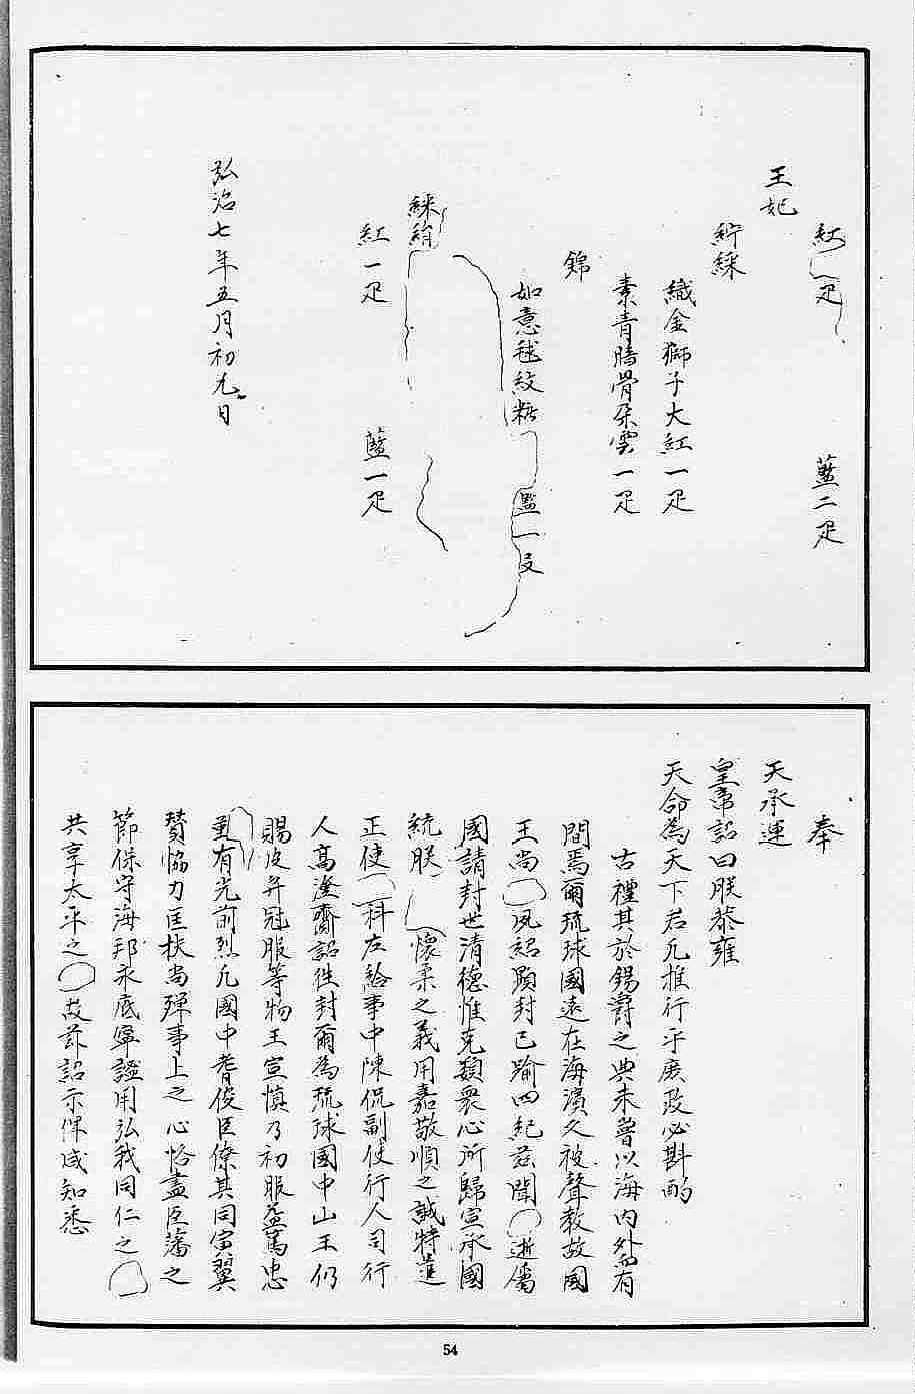 紅 疋 藍二疋
王妃
紵絲
織金獅子大紅一疋
素青暗骨朵雲一疋
錦
如意毬紋 藍一段
絹
紅一疋 藍一疋
弘治七年五月初九日
奉
天承運
皇帝詔曰朕恭膺
天命為天下君凡推行乎庶政必斟酌
古禮其於錫爵之典未嘗以海內外而有
間焉爾琉球國遠在海濱久被聲教故國
王尚 夙紹顯封已踰四紀茲聞 逝屬
國請封世清德惟克類衆心所歸宜承國
統朕 懷柔之義用嘉敬順之誠特遣
正使 科左給事中陳侃副使行人司行
人高澄齎詔徃封爾為琉球國中山王仍
賜皮弁冠服等物王宜慎乃初服益篤忠
有光前烈凡國中耆俊臣僚其同寅翼
賛協力匡扶尚殫事上之心恪盡臣藩之
節保守海邦永底寧謐用弘我同仁之
共享太平之 故茲詔示俾咸知悉
54